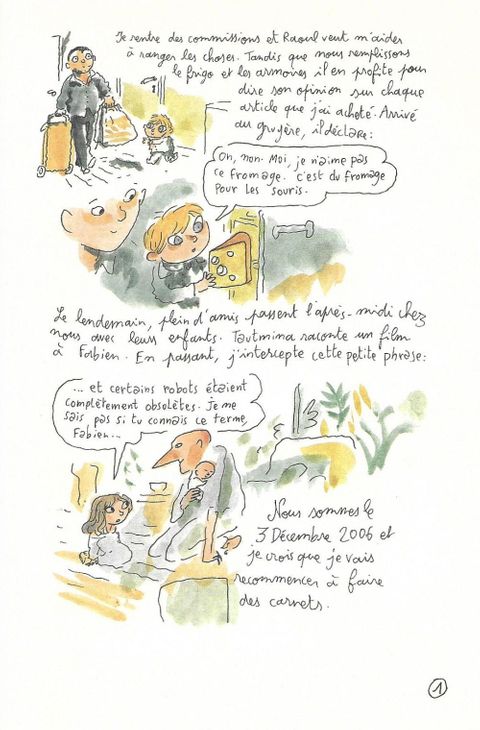 Je rentre des commissions et Raoul veut m'aider
à ranger les choses. Tandis que nous remplissons
le frigo et les armoires il en profite pour
dire son opinion sur chaque
article que j'ai acheté. Arrivé
au gruyère, il déclare:
Oh, non. Moi, je n'aime pas
ce fromage. C'est du fromage
pour les souris.
Le lendemain, plein d'amis passent l'après-midi chez
nous avec leurs enfants. Tautmina raconte un film
à Fabien. En passant, j'intercepte cette petite phrase:
... et certains robots étaient
complètement obsolètes. Je me
sais pas si tu connais ce terme,
Fabien...
Nous sommes le
3 Décembre 2006 et
je crois que je vais
recommencer à faire
des carnets.
1